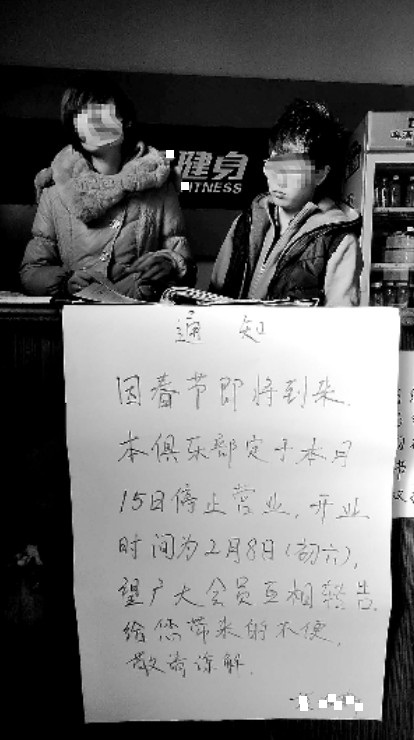 健身
FITNESS
通知
因春节即将到来，
本俱乐部定于本月
15日停止营业，开业
时间为2月8日（初六），
望广大会员互相转告，
给您带来的不便，
敬请谅解。